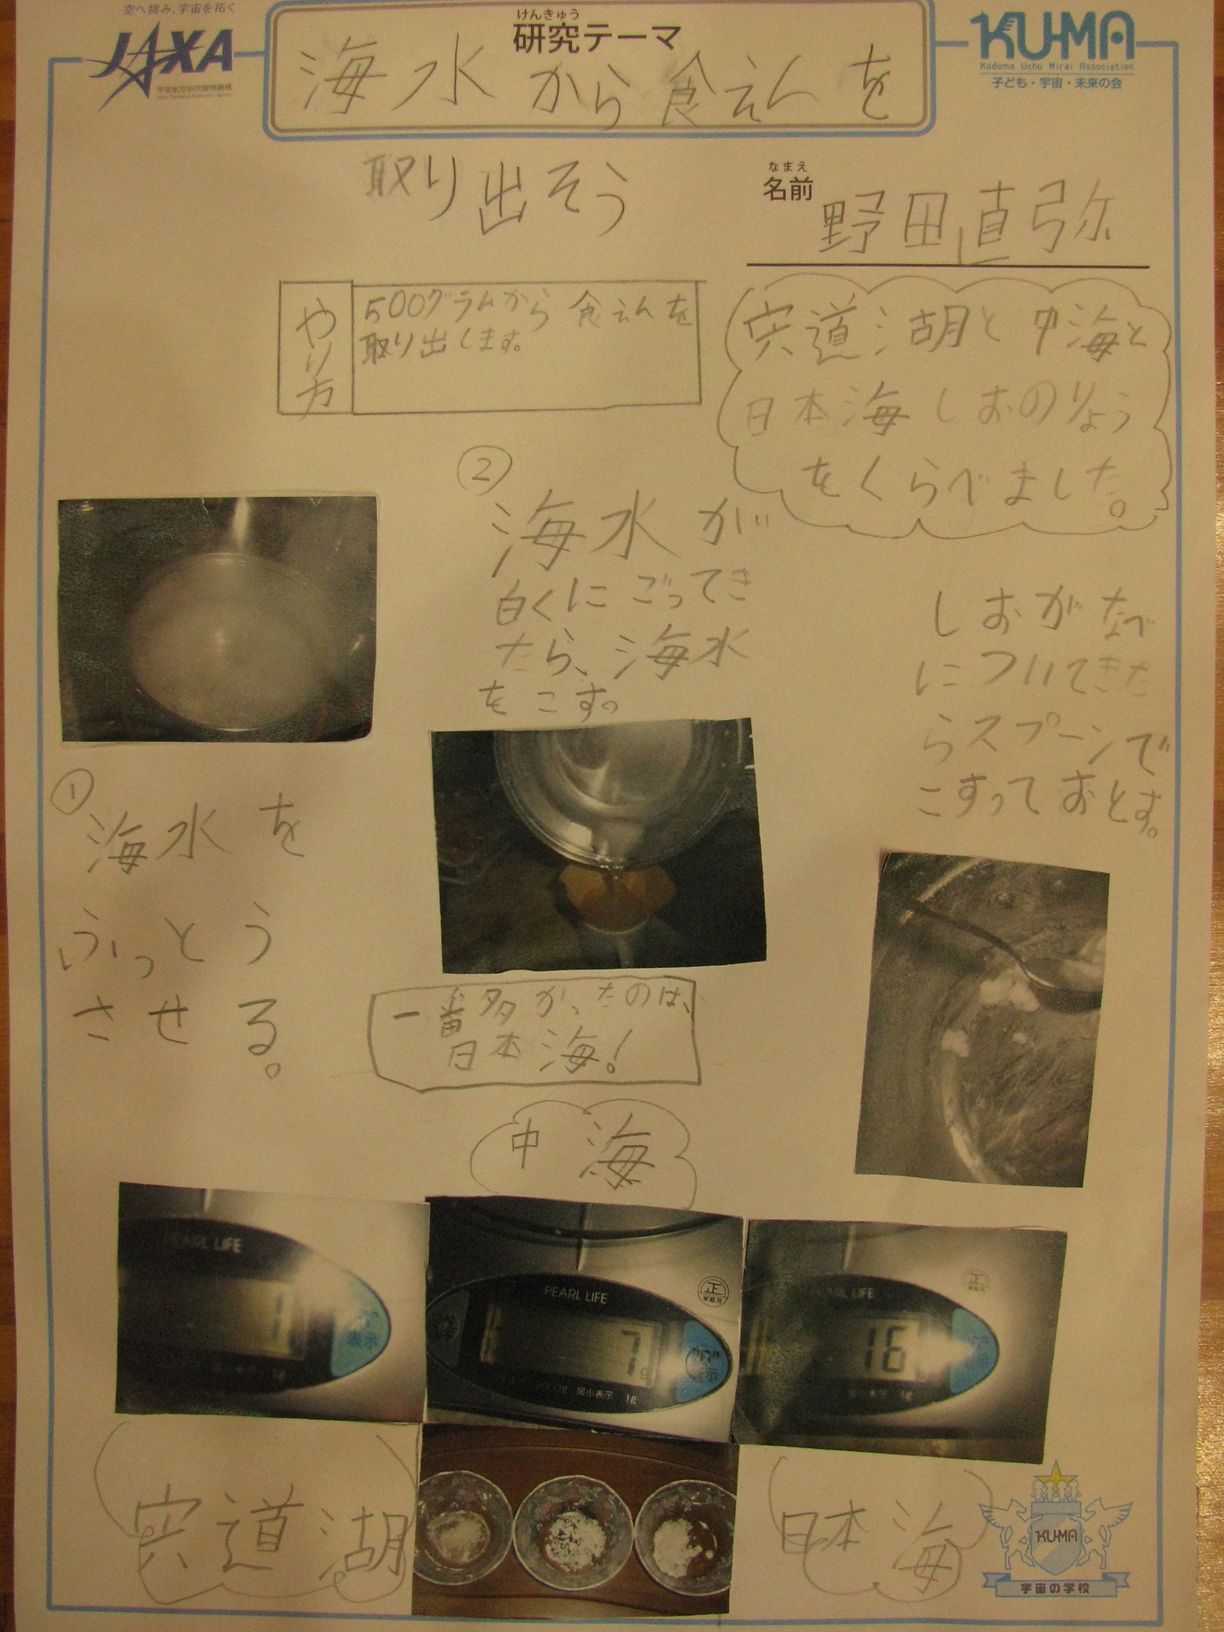 空へ挑み、宇宙を拓く
JAXA
宇宙航空研究開発機構
けんきゅう
研究テーマ
海水から食えんを
取り出そう
KU-MA
Kodomo Uchu Mirai Association
子ども・宇宙・未来の会
なまえ
名前
野田直弥
やり方
500グラムから食えんを
取り出します。
宍道湖と中海と
日本海しおのりょう
をくらべました。
①
海水を
ふっとう
させる。
②
海水が
白くにごってき
たら、海水
をこす。
しおがなべ
についてきた
らスプーンで
こすっておとす。
一番多かったのは、
日本海!
中海
PEARL LIFE
1
表示
1g
PEARL LIFE
正
家庭用
7g
表示
最小表示 1g
PEARL LIFE
正
16
表示
1g
宍道湖
日本海
KU-MA
宇宙の学校